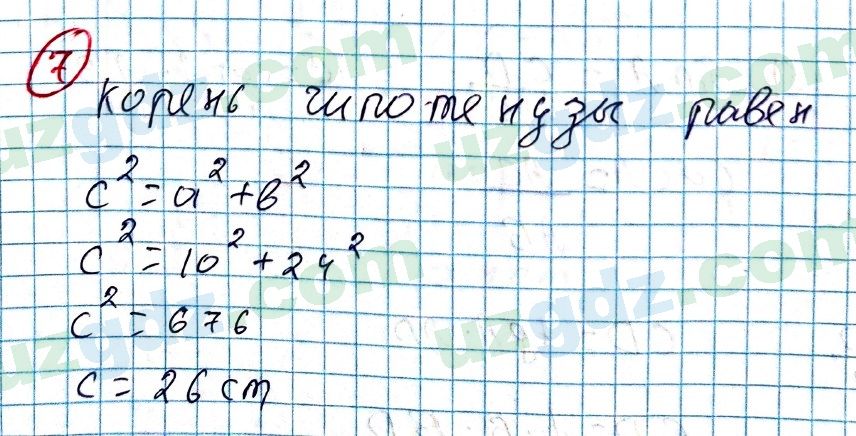 7
корень гипотенузы равен
c² = a² + b²
c² = 10² + 24²
c² = 676
c = 26 cm
uzgdz.com
uzgdz.com
uzgdz.com
uzgdz.com